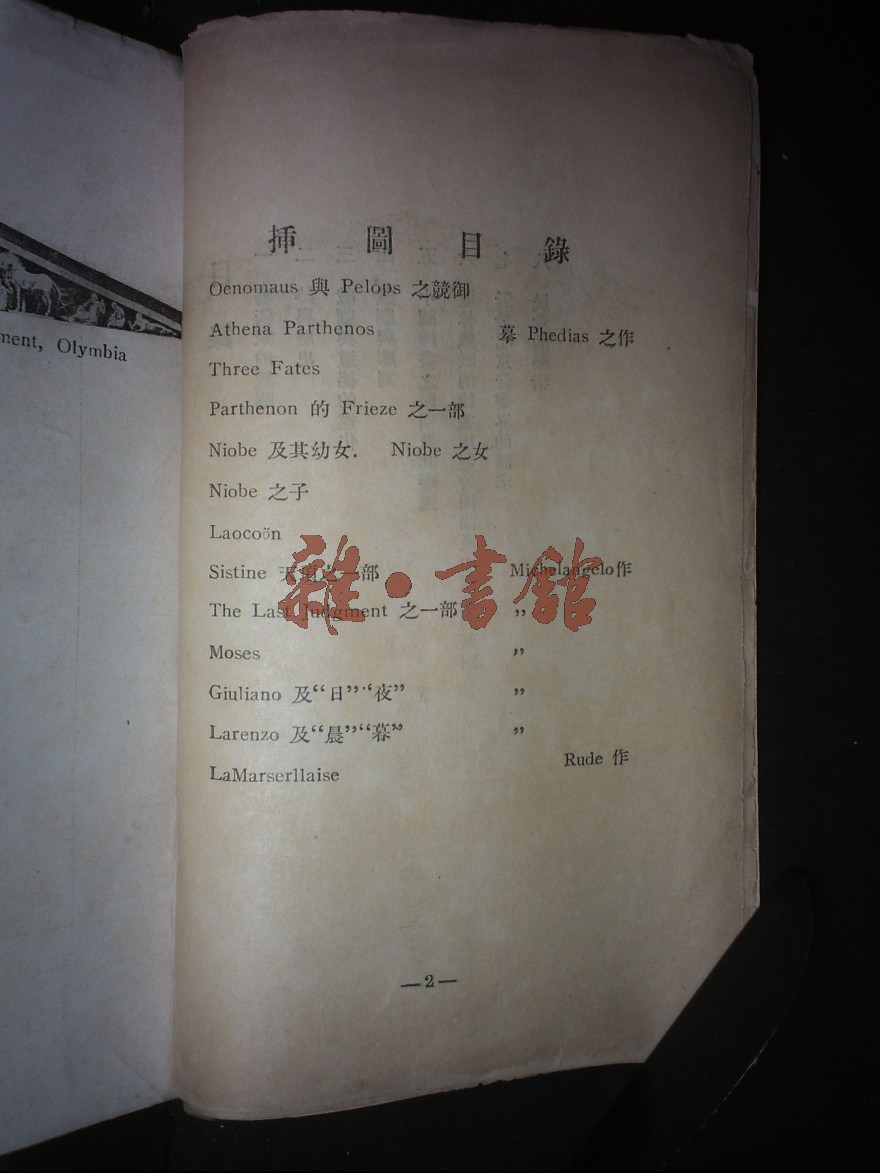 ment, Olymbia
插圖目錄
Oenomaus 與 Pelops 之競御
Athena Parthenos 摹 Phedias 之作
Three Fates
Parthenon 的 Frieze 之一部
Niobe 及其幼女. Niobe 之女
Niobe 之子
Laocoön
Sistine 天頂之一部 Michelangelo作
The Last Judgment 之一部 ,,
Moses ,,
Giuliano 及“日”“夜” ,,
Larenzo 及“晨”“暮” ,,
LaMarserllaise Rude 作
—2—
雜·書館